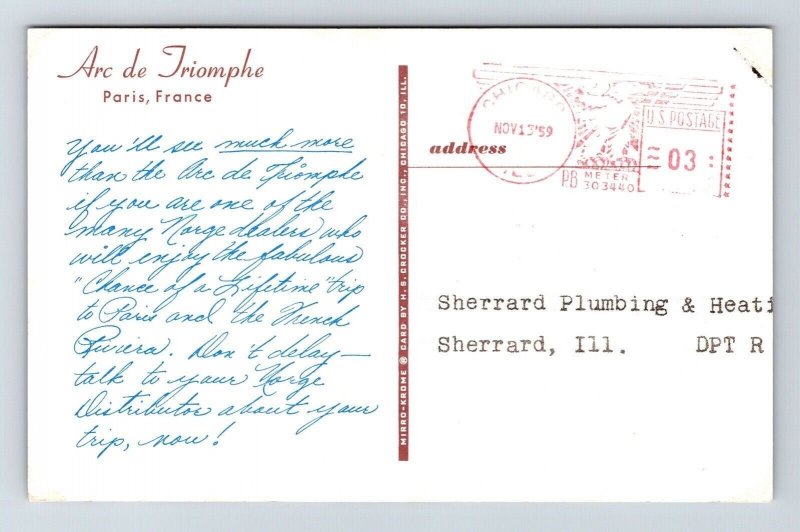 Arc de Triomphe
Paris, France
You'll see much more
than the Arc de Triomphe
if you are one of the
many Norge dealers who
will enjoy the fabulous
"Chance of a Lifetime" trip
to Paris and the French
Riviera. Don't delay—
talk to your Norge
Distributor about your
trip, now!
MIRRO-KROME ® CARD BY H. S. CROCKER CO., INC., CHICAGO 10, ILL.
address
CHICAGO
NOV 13 '59
ILL
U.S. POSTAGE
03
PB METER
303440
Sherrard Plumbing & Heati
Sherrard, Ill. DPT R